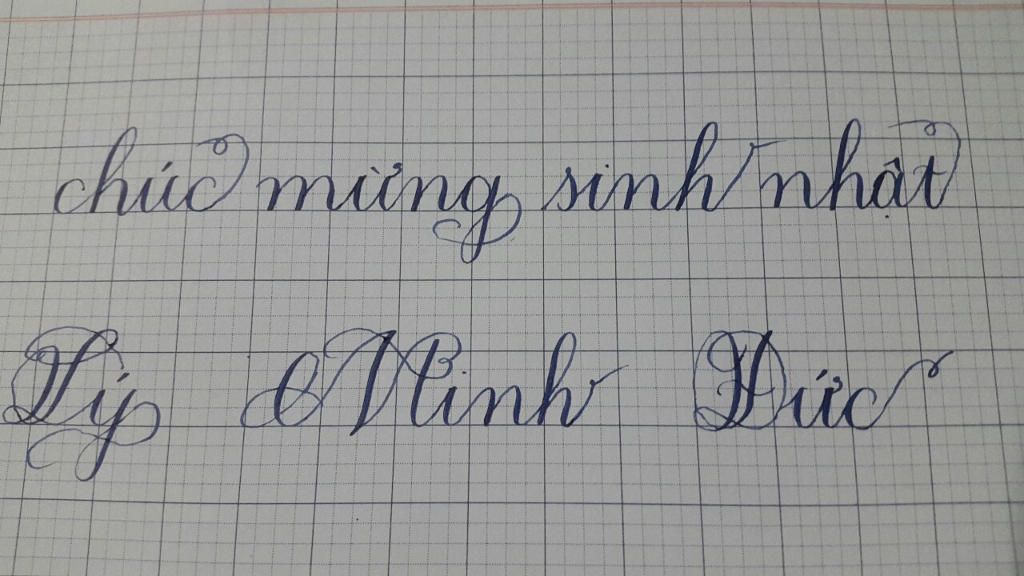 chúc mừng sinh nhật
Lý Minh Đức